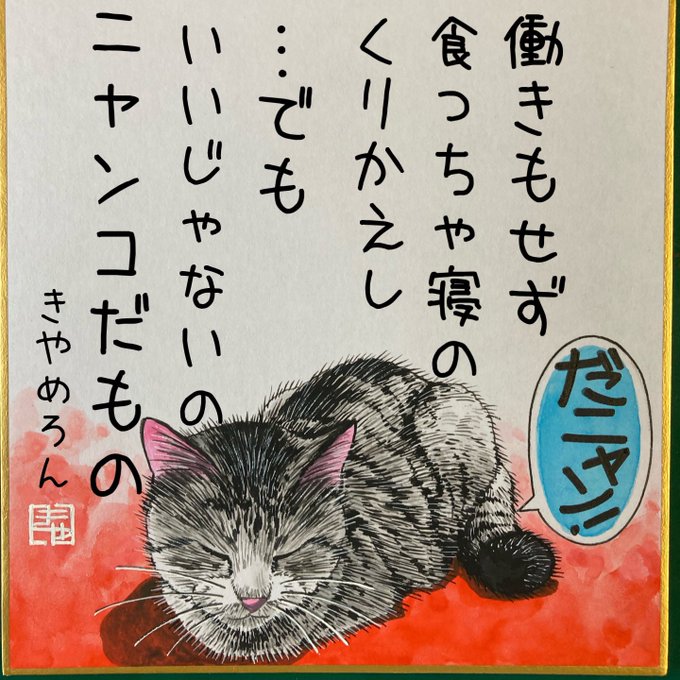 働きもせず
食っちゃ寝の
くりかえし
…でも
いいじゃないの
ニャンコだもの
きやめろん
だニャン!